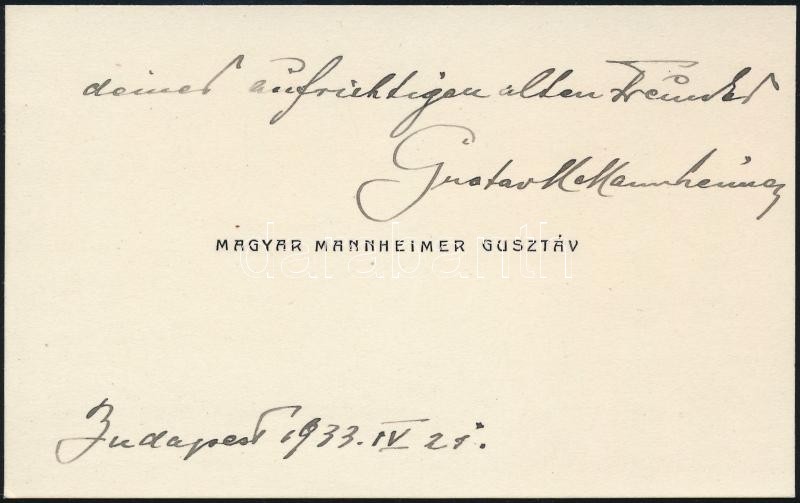 deines aufrichtigen alten Freundes
Gustav M Mannheimer
MAGYAR MANNHEIMER GUSZTÁV
darabanth
Budapest 1933. IV 21.